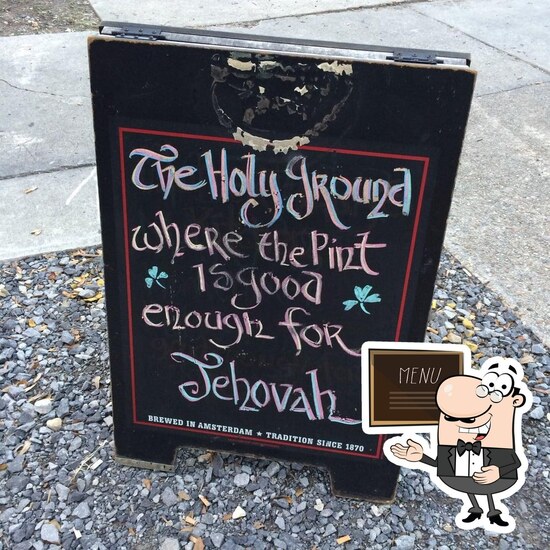 The Holy Ground
where the Pint
is good
enough for
Jehovah
BREWED IN AMSTERDAM ★ TRADITION SINCE 1870
MENU